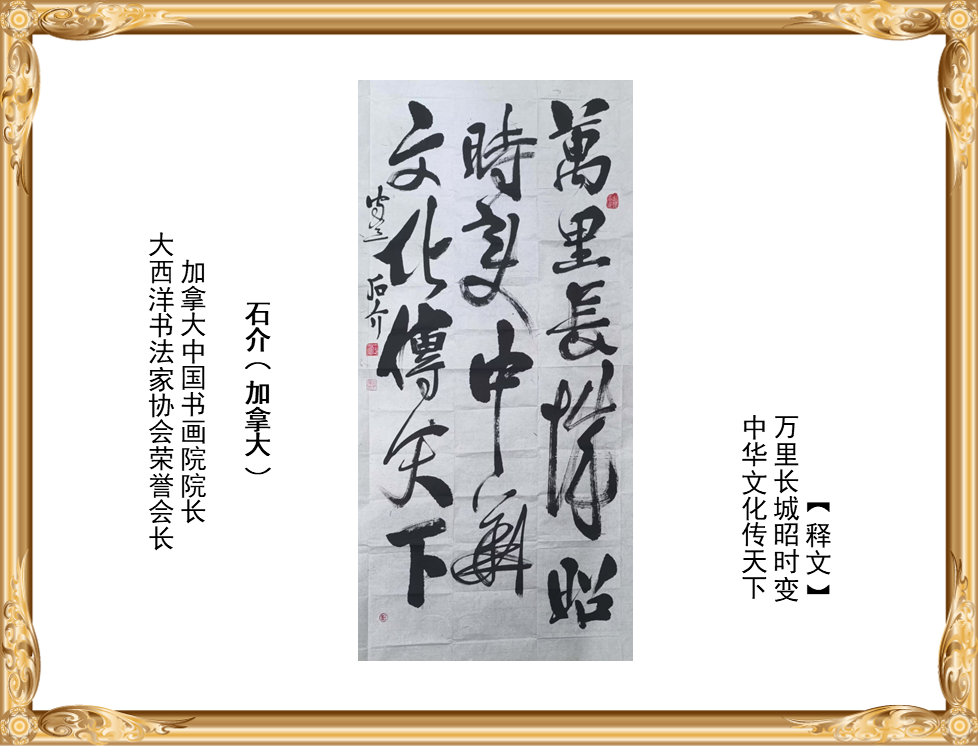 【释文】
万里长城昭时变
中华文化传天下
萬里長城昭
時变中華
文化傳天下
石介
石介（加拿大）
加拿大中国书画院院长
大西洋书法家协会荣誉会长